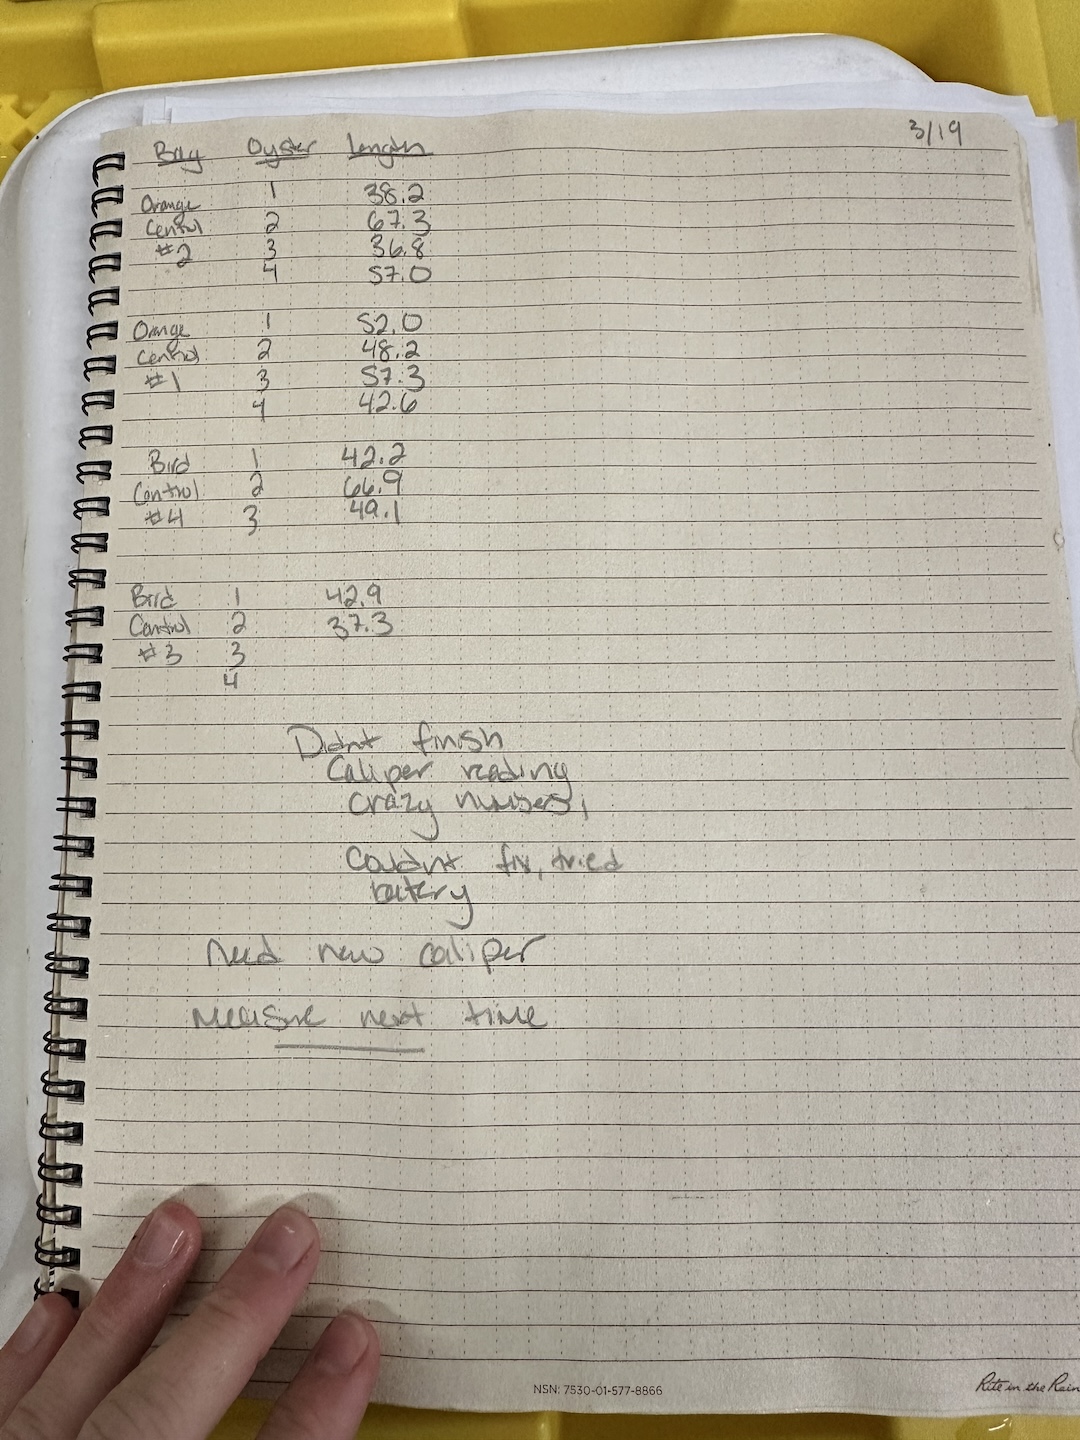 Bag Oyster Length 3/19
Orange 1 38.2
Control 2 67.3
#2 3 36.8
4 57.0
Orange 1 52.0
Control 2 48.2
#1 3 57.3
4 42.6
Bird 1 42.2
Control 2 66.9
#4 3 49.1
Bird 1 42.9
Control 2 37.3
#3 3
4
Didnt finish
Caliper reading
crazy numbers,
Couldnt fix, tried
batery
need new caliper
measure next time
NSN: 7530-01-577-8866
Rite in the Rain